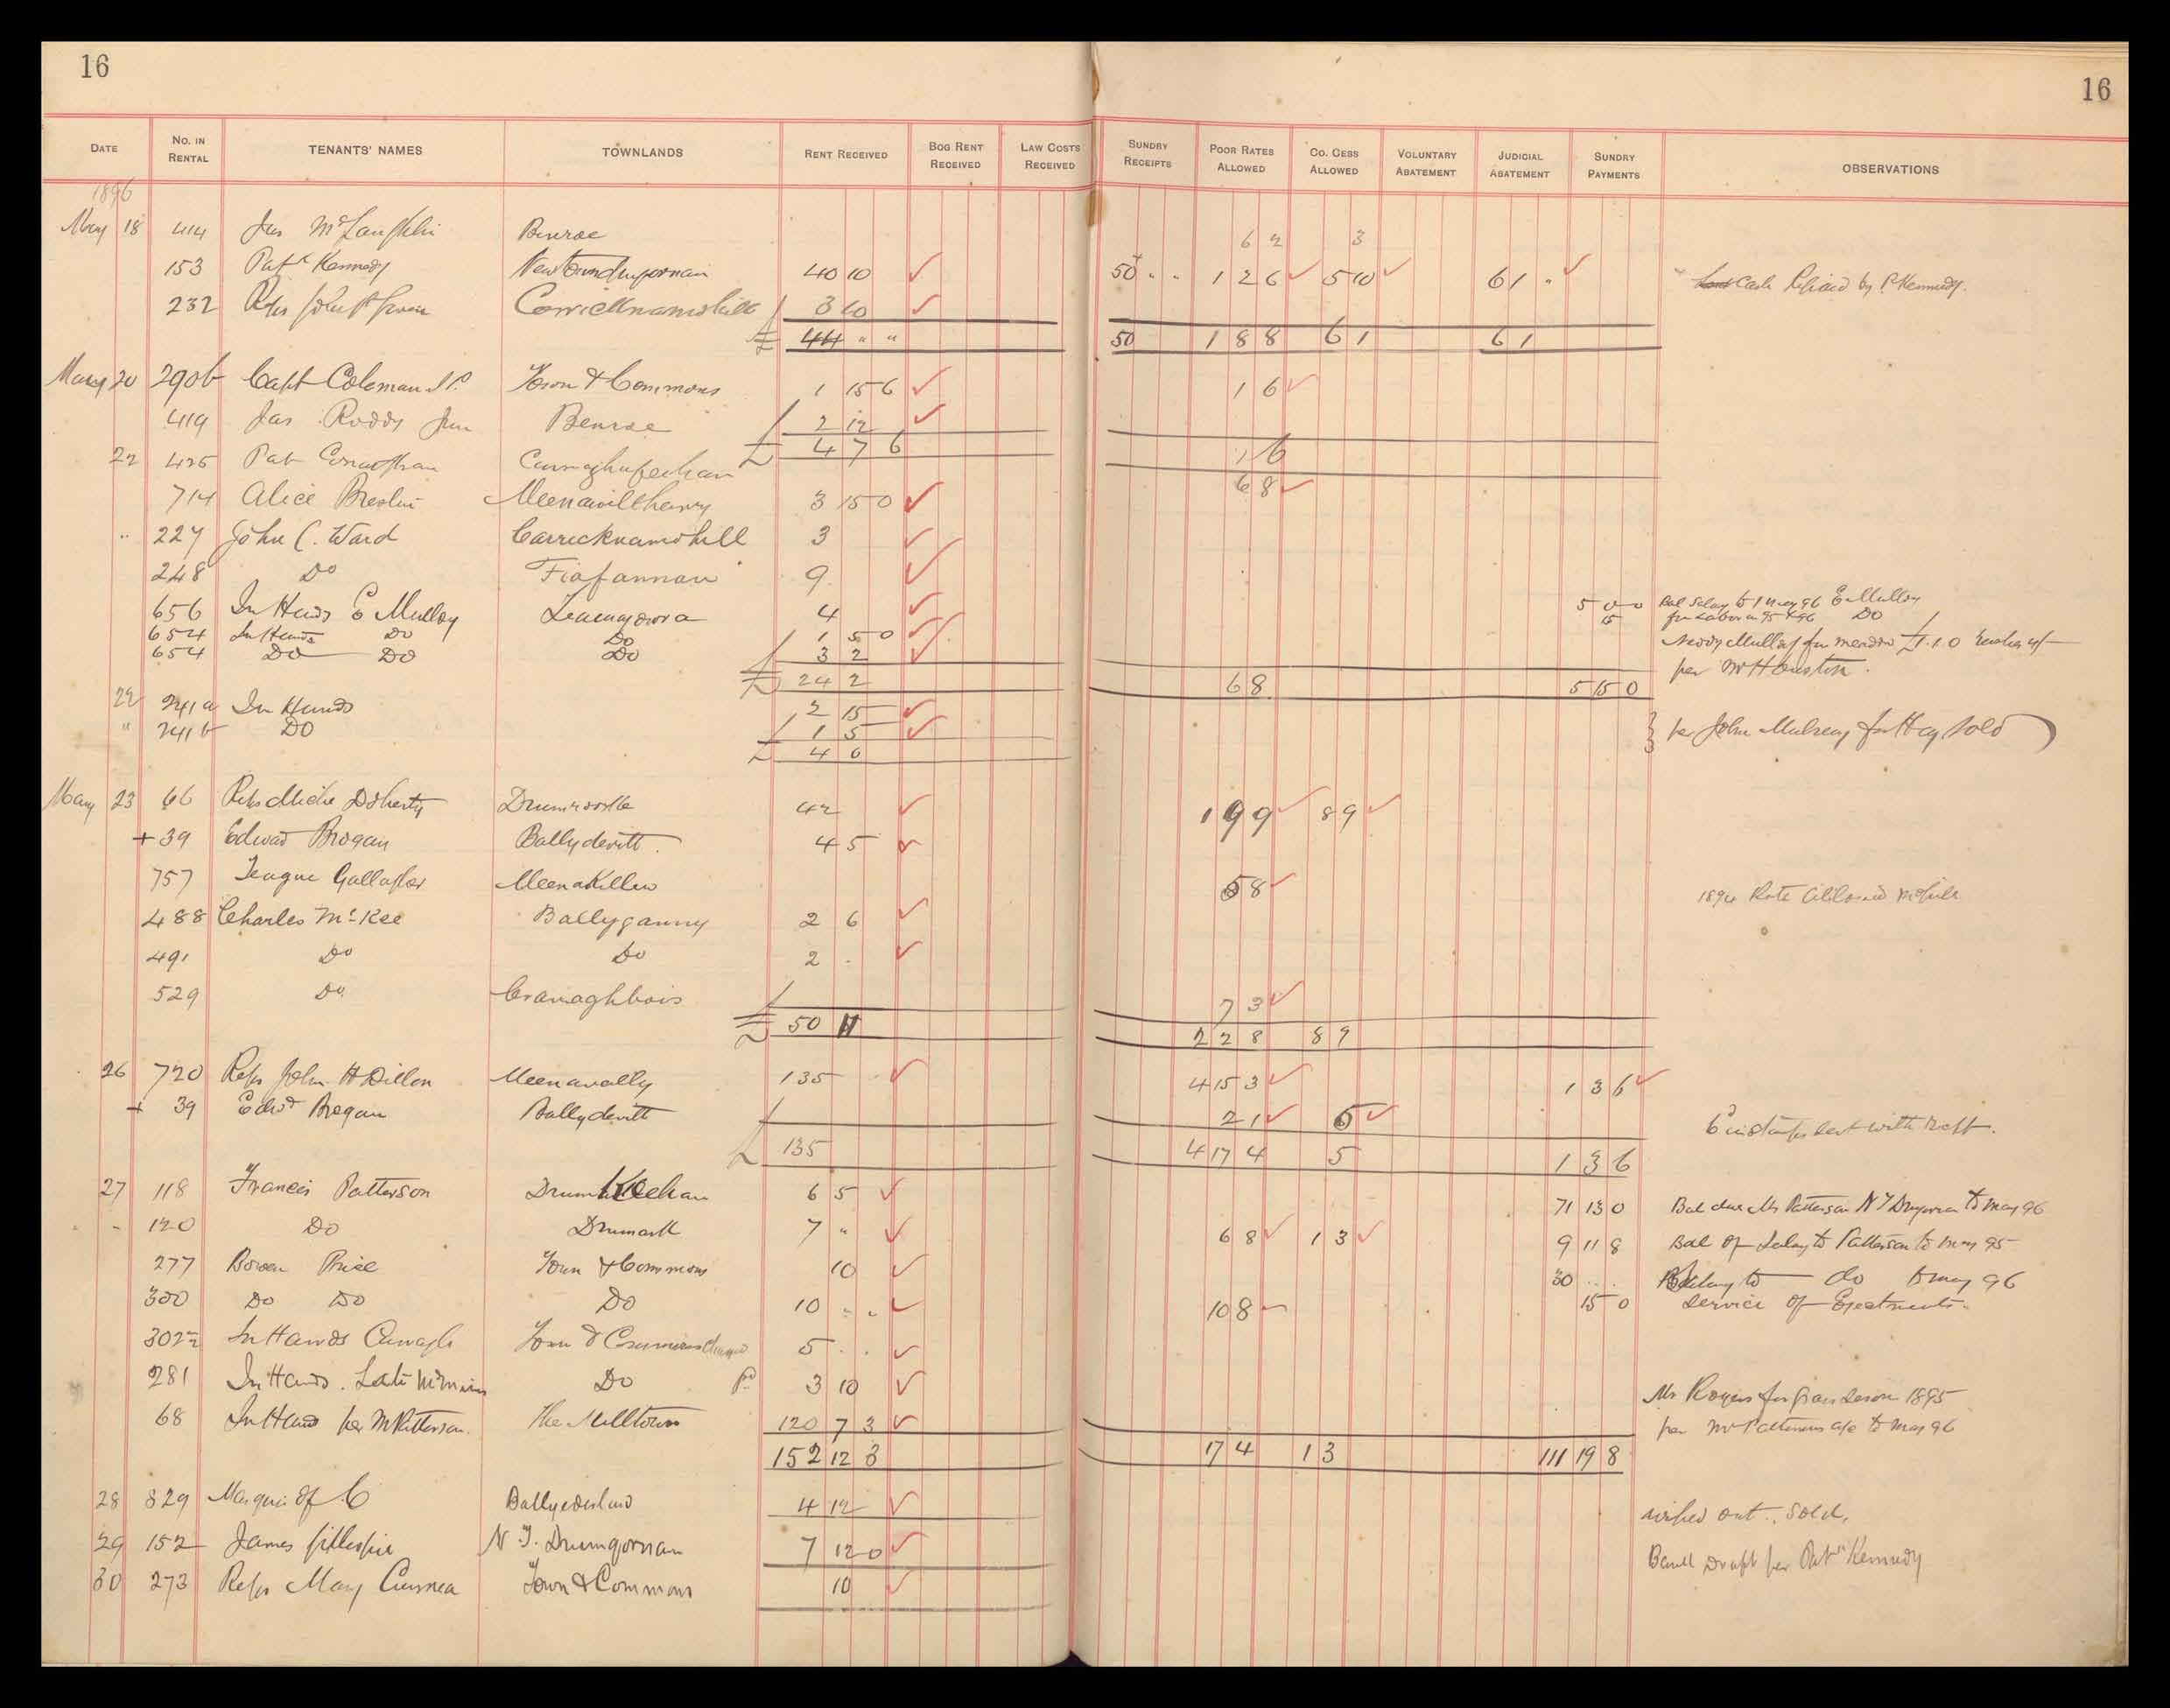 16
16
DATE No. IN RENTAL TENANTS' NAMES TOWNLANDS RENT RECEIVED BOG RENT RECEIVED LAW COSTS RECEIVED SUNDRY RECEIPTS POOR RATES ALLOWED CO. CESS ALLOWED VOLUNTARY ABATEMENT JUDICIAL ABATEMENT SUNDRY PAYMENTS OBSERVATIONS
1896
May 18 414 Jas McLaughlin Benroe 6 2 3
153 Patk Kennedy Newtowndrumgornan 40 10 50 " " 1 2 6 5 10 6 1 " Cash by P. Kennedy.
232 Reps John Carricknamohill 3 10
£ 44 " " 50 1 8 8 6 1 6 1
May 20 290b Capt Coleman J.P. Town & Commons 1 15 6 1 6
419 Jas Roddy Jun Benroe 2 12
£ 4 7 6 1 6
22 425 Pat 6 8
714 Alice Breslin 3 15 0
" 227 John C. Ward Carricknamohill 3
248 Do Fiafannan 9
656 In Hands E Mulloy 4 5 0 0 Bal Salary to 1 May 96 E Mulloy
654 In Hands Do Do 1 5 0 15 for Labour 95 & 96 Do
654 Do Do Do 3 2 Neddy Mulloy for meadow £1.1.0
£ 24 2 6 8 5 15 0 per Mr Houston.
22 241a In Hands 2 15
" 241b Do 1 5 per John Mulreany for Hay sold
£ 4 0
May 23 66 Reps Miche Doherty Drumrooske 42 1 9 9 8 9
+ 39 Edward Brogan Ballydevitt. 4 5
757 Teague Gallagher Meenakillew 5 8 1894 Rate
488 Charles McKee Ballyganny 2 6
491 Do Do 2 -
529 Do Cranaghbois 7 3
£ 50 11 2 2 8 8 9
26 720 Reps John H Dillon Meenavally 135 4 15 3 1 3 6
+ 39 Edwd Brogan Ballydevitt 2 1 5
£ 135 4 17 4 5 1 3 6
27 118 Francis Patterson Drumkeelan 6 5 71 13 0 Bal due Mr Patterson N T Drumgornan to May 96
- 120 Do Drumark 7 " 6 8 1 3 9 11 8 Bal of Salary to Patterson to May 95
277 Bowen Price Town & Commons 10 30 .. Salary to do to May 96
300 Do Do Do 10 " " 10 8 15 0 Service of Ejectments.
302½ In Hands Town & Commons 5 . .
281 In Hands. Late Do pd 3 10 Mr Rogers for 1895
68 In Hand per Mr Patterson. The Milltown 120 7 3 per Mr Pattersons a/c to May 96
152 12 3 17 4 1 3 111 19 8
28 829 Marquis of C 4 12 wiped out. Sold.
29 152 James Gillespie N. T. Drumgornan 7 12 0 Bank Draft per Patk Kennedy
30 273 Reps Mary Town & Commons 10